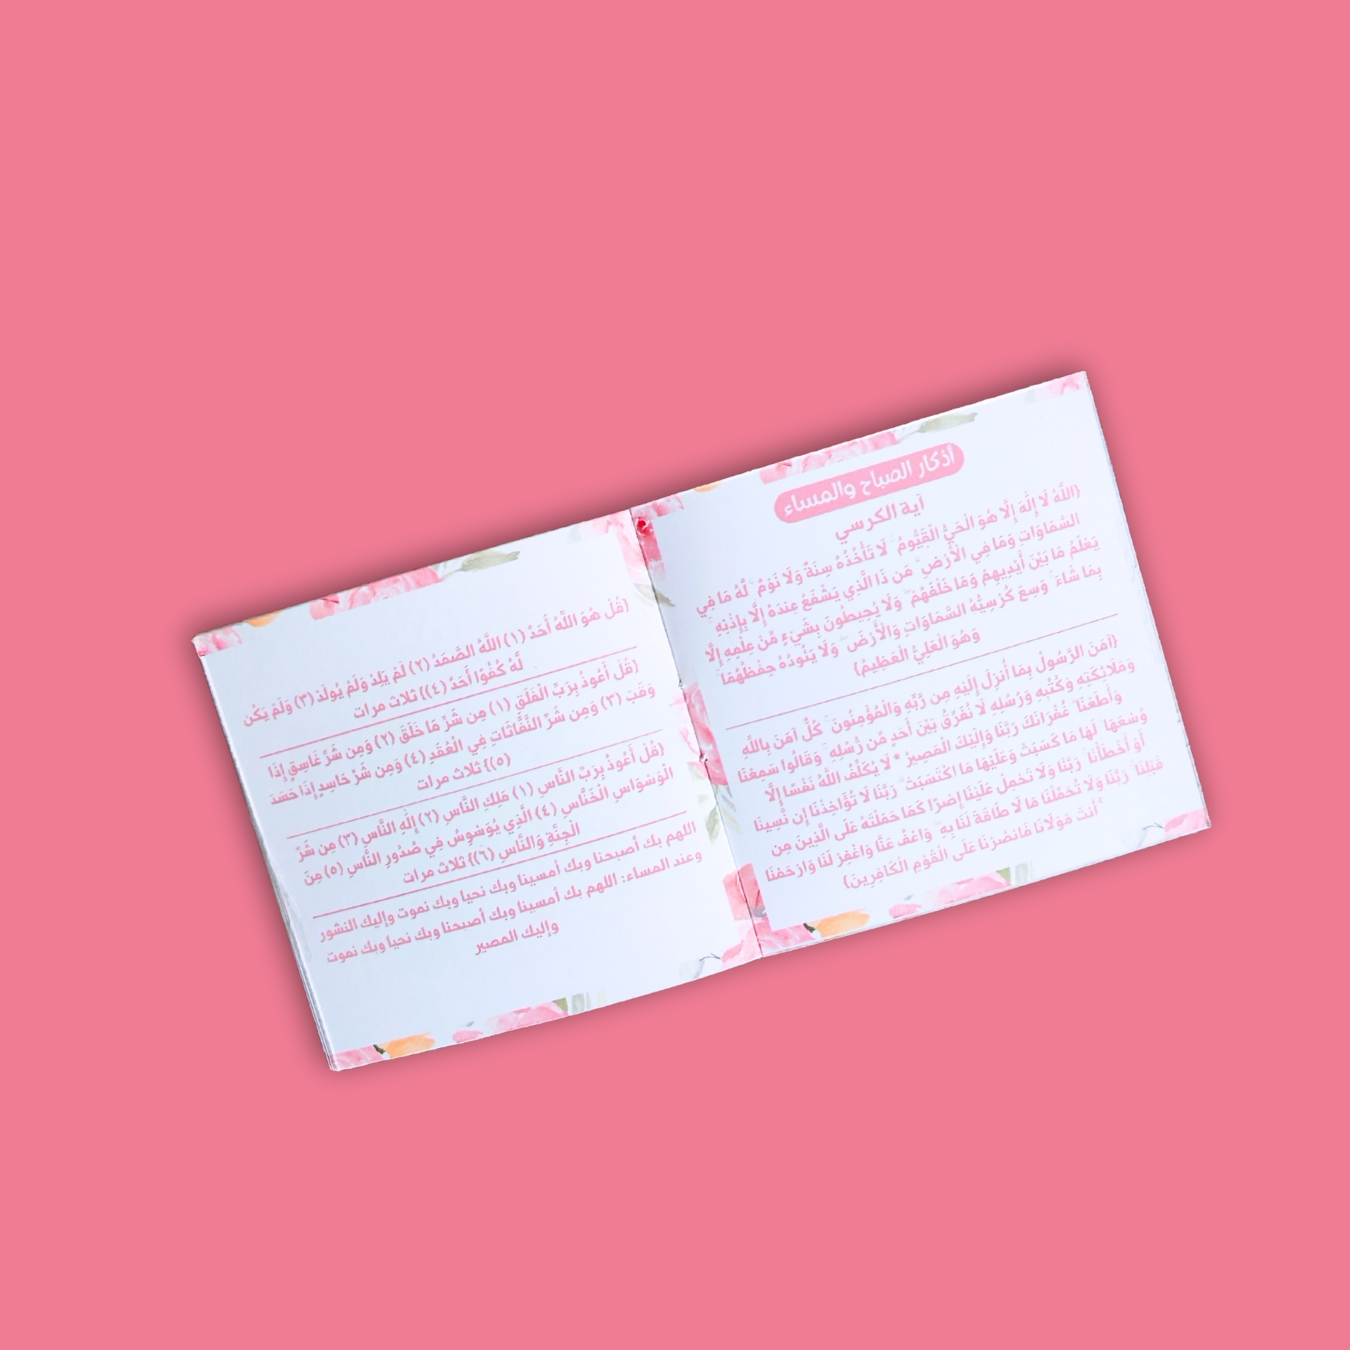 أذكار الصباح والمساء
آية الكرسي
{اللَّهُ لَا إِلَٰهَ إِلَّا هُوَ الْحَيُّ الْقَيُّومُ ۚ لَا تَأْخُذُهُ سِنَةٌ وَلَا نَوْمٌ ۚ لَّهُ مَا فِي
السَّمَاوَاتِ وَمَا فِي الْأَرْضِ ۗ مَن ذَا الَّذِي يَشْفَعُ عِندَهُ إِلَّا بِإِذْنِهِ ۚ
يَعْلَمُ مَا بَيْنَ أَيْدِيهِمْ وَمَا خَلْفَهُمْ ۖ وَلَا يُحِيطُونَ بِشَيْءٍ مِّنْ عِلْمِهِ إِلَّا
بِمَا شَاءَ ۚ وَسِعَ كُرْسِيُّهُ السَّمَاوَاتِ وَالْأَرْضَ ۖ وَلَا يَئُودُهُ حِفْظُهُمَا ۚ
وَهُوَ الْعَلِيُّ الْعَظِيمُ}
{آمَنَ الرَّسُولُ بِمَا أُنزِلَ إِلَيْهِ مِن رَّبِّهِ وَالْمُؤْمِنُونَ ۚ كُلٌّ آمَنَ بِاللَّهِ
وَمَلَائِكَتِهِ وَكُتُبِهِ وَرُسُلِهِ لَا نُفَرِّقُ بَيْنَ أَحَدٍ مِّن رُّسُلِهِ ۚ وَقَالُوا سَمِعْنَا
وَأَطَعْنَا ۖ غُفْرَانَكَ رَبَّنَا وَإِلَيْكَ الْمَصِيرُ * لَا يُكَلِّفُ اللَّهُ نَفْسًا إِلَّا
وُسْعَهَا ۚ لَهَا مَا كَسَبَتْ وَعَلَيْهَا مَا اكْتَسَبَتْ ۗ رَبَّنَا لَا تُؤَاخِذْنَا إِن نَّسِينَا
أَوْ أَخْطَأْنَا ۚ رَبَّنَا وَلَا تَحْمِلْ عَلَيْنَا إِصْرًا كَمَا حَمَلْتَهُ عَلَى الَّذِينَ مِن
قَبْلِنَا ۚ رَبَّنَا وَلَا تُحَمِّلْنَا مَا لَا طَاقَةَ لَنَا بِهِ ۖ وَاعْفُ عَنَّا وَاغْفِرْ لَنَا وَارْحَمْنَا
ۚ أَنتَ مَوْلَانَا فَانصُرْنَا عَلَى الْقَوْمِ الْكَافِرِينَ}
{قُلْ هُوَ اللَّهُ أَحَدٌ (١) اللَّهُ الصَّمَدُ (٢) لَمْ يَلِدْ وَلَمْ يُولَدْ (٣) وَلَمْ يَكُن
لَّهُ كُفُوًا أَحَدٌ (٤)} ثلاث مرات
{قُلْ أَعُوذُ بِرَبِّ الْفَلَقِ (١) مِن شَرِّ مَا خَلَقَ (٢) وَمِن شَرِّ غَاسِقٍ إِذَا
وَقَبَ (٣) وَمِن شَرِّ النَّفَّاثَاتِ فِي الْعُقَدِ (٤) وَمِن شَرِّ حَاسِدٍ إِذَا حَسَدَ
(٥)} ثلاث مرات
{قُلْ أَعُوذُ بِرَبِّ النَّاسِ (١) مَلِكِ النَّاسِ (٢) إِلَٰهِ النَّاسِ (٣) مِن شَرِّ
الْوَسْوَاسِ الْخَنَّاسِ (٤) الَّذِي يُوَسْوِسُ فِي صُدُورِ النَّاسِ (٥) مِنَ
الْجِنَّةِ وَالنَّاسِ (٦)} ثلاث مرات
اللهم بك أصبحنا وبك أمسينا وبك نحيا وبك نموت وإليك النشور
وعند المساء: اللهم بك أمسينا وبك أصبحنا وبك نحيا وبك نموت
وإليك المصير